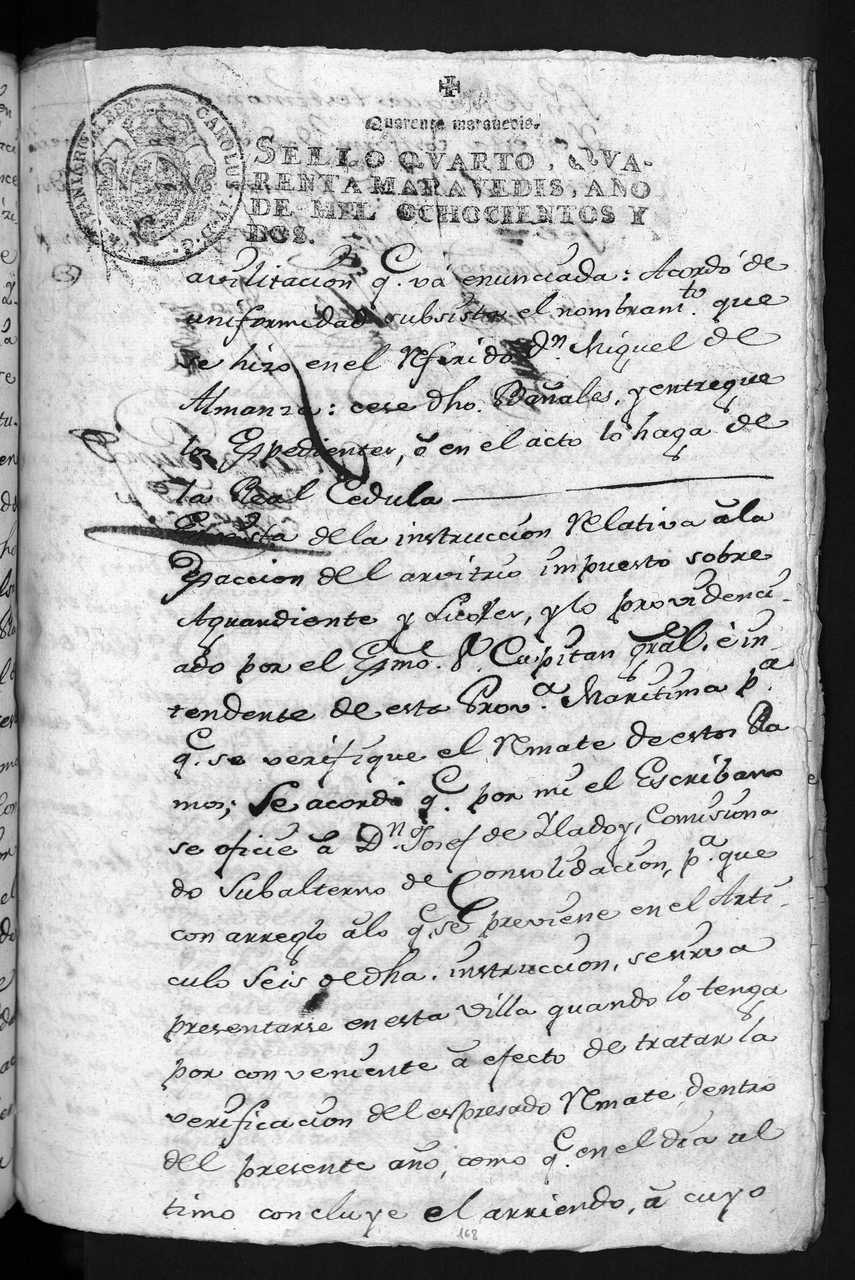 ✠
Quarenta marauedis.
SELLO QVARTO, QVA-
RENTA MARAVEDIS, AÑO
DE MIL OCHOCIENTOS Y
DOS.
CAROLUS IV D G HISPANIAR REX
avilitacion q.e vá enunciada: Acordó de
uniformidad subsista el nombram.to que
se hizo en el Referido D.n Miguel de
Almanza: cese dho. Bañales, y entregue
los Expedientes, ó en el acto lo haga de
la Real Cedula
En vista de la instruccion Relativa a la
Exaccion del arvitrio impuesto sobre
Aguardiente y Licores, y lo providenci-
ado por el Exmo. S.r Capitan Gral. é in
tendente de esta Prov.a Maritima p.a
q.e se verifique el Remate de estos Ra
mos; Se acordó q.e por mi el Escribano
se oficie á D.n Josef de Lladoy, Comisiona
do Subalterno de Consolidacion, p.a que
con arreglo a lo q.e se previene en el Arti-
culo Seis de dha. instruccion, se sirva
presentarse en esta villa quando lo tenga
por conveniente á efecto de tratar la
verificacion del espresado Remate dentro
del presente año, como q.e en el dia ul
timo concluye el arriendo, á cuyo
168